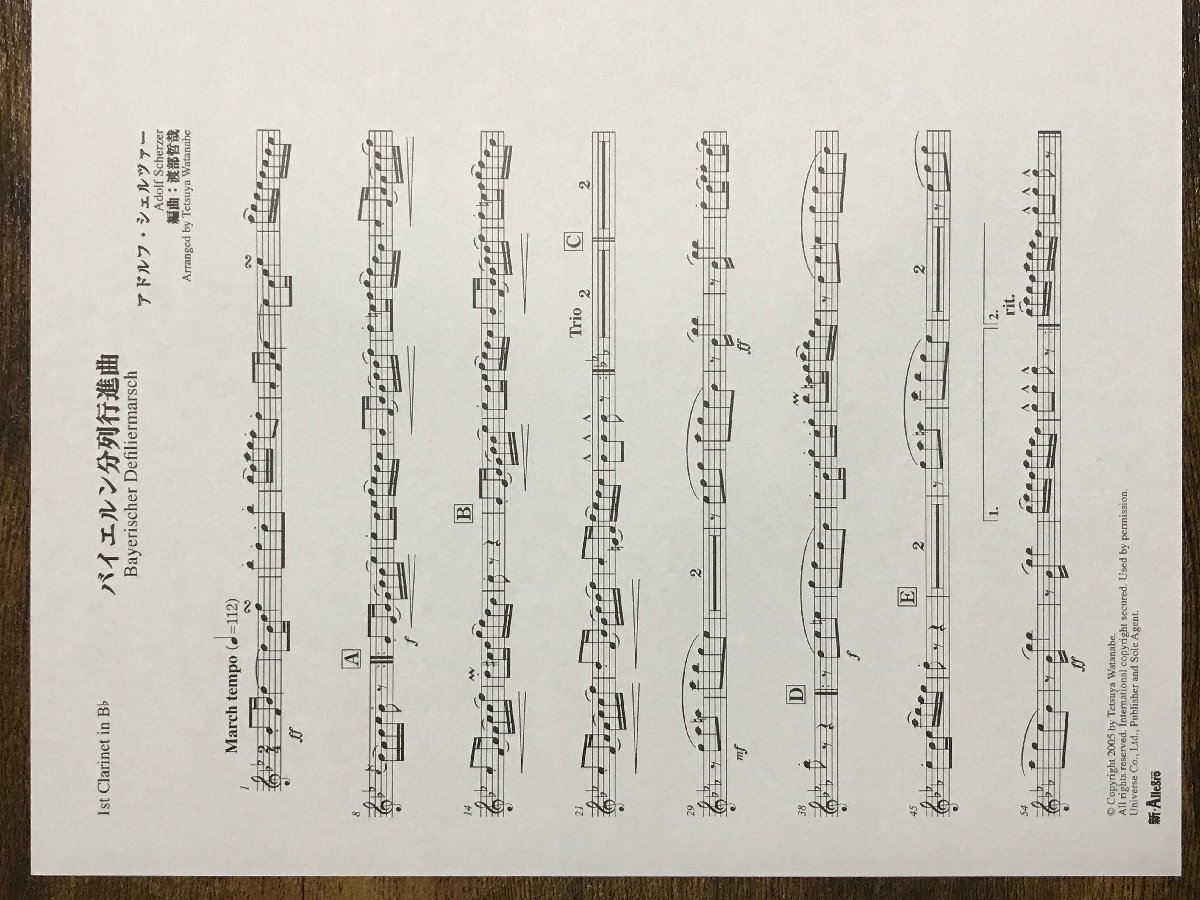 1st Clarinet in B♭
バイエルン分列行進曲
Bayerischer Defiliermarsch
アドルフ・シェルツァー
Adolf Scherzer
編曲：渡部哲哉
Arranged by Tetsuya Watanabe
March tempo (♩=112)
1
ff
8
A
f
14
B
21
Trio
2
C
2
29
mf
2
ff
38
D
f
45
E
2
2
54
ff
1.
2.
rit.
© Copyright 2005 by Tetsuya Watanabe.
All rights reserved. International copyright secured. Used by permission.
Universe Co., Ltd., Publisher and Sole Agent.
新・Allegro